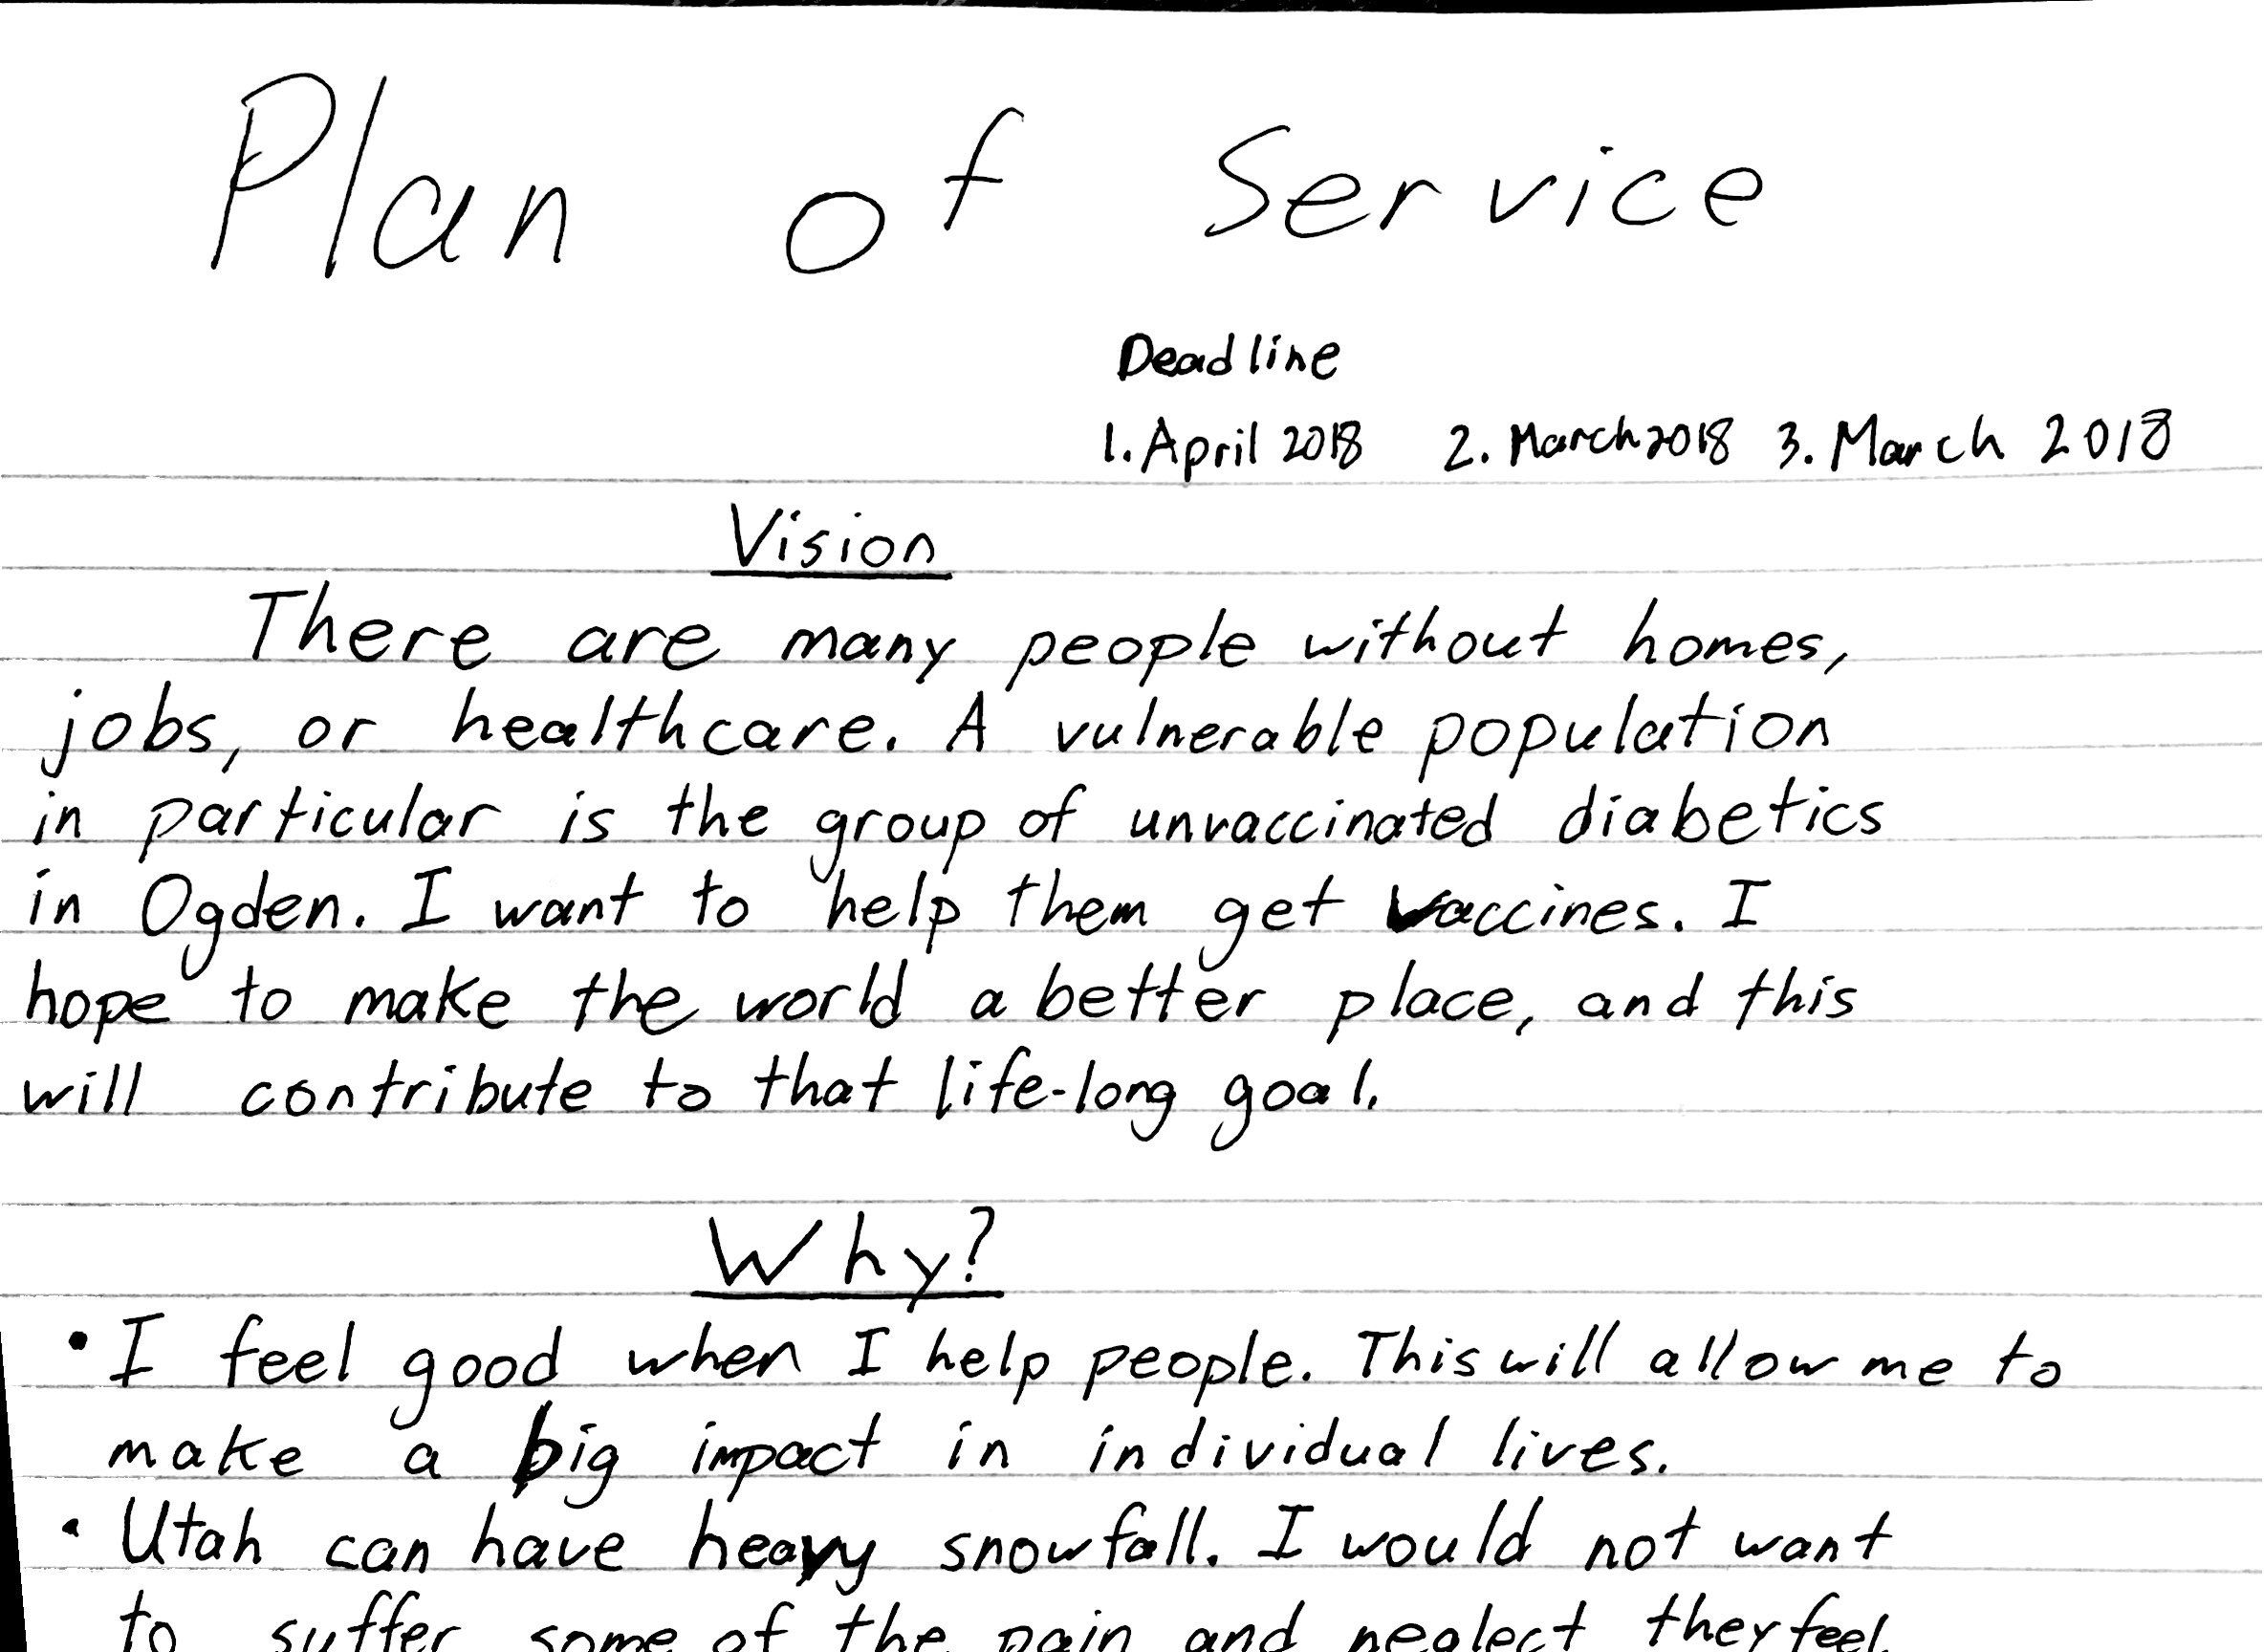 Plan of Service
Deadline
1. April 2018 2. March 2018 3. March 2018
Vision
There are many people without homes,
jobs, or healthcare. A vulnerable population
in particular is the group of unvaccinated diabetics
in Ogden. I want to help them get vaccines. I
hope to make the world a better place, and this
will contribute to that life-long goal.
Why?
• I feel good when I help people. This will allow me to
make a big impact in individual lives.
• Utah can have heavy snowfall. I would not want
to suffer some of the pain and neglect they feel